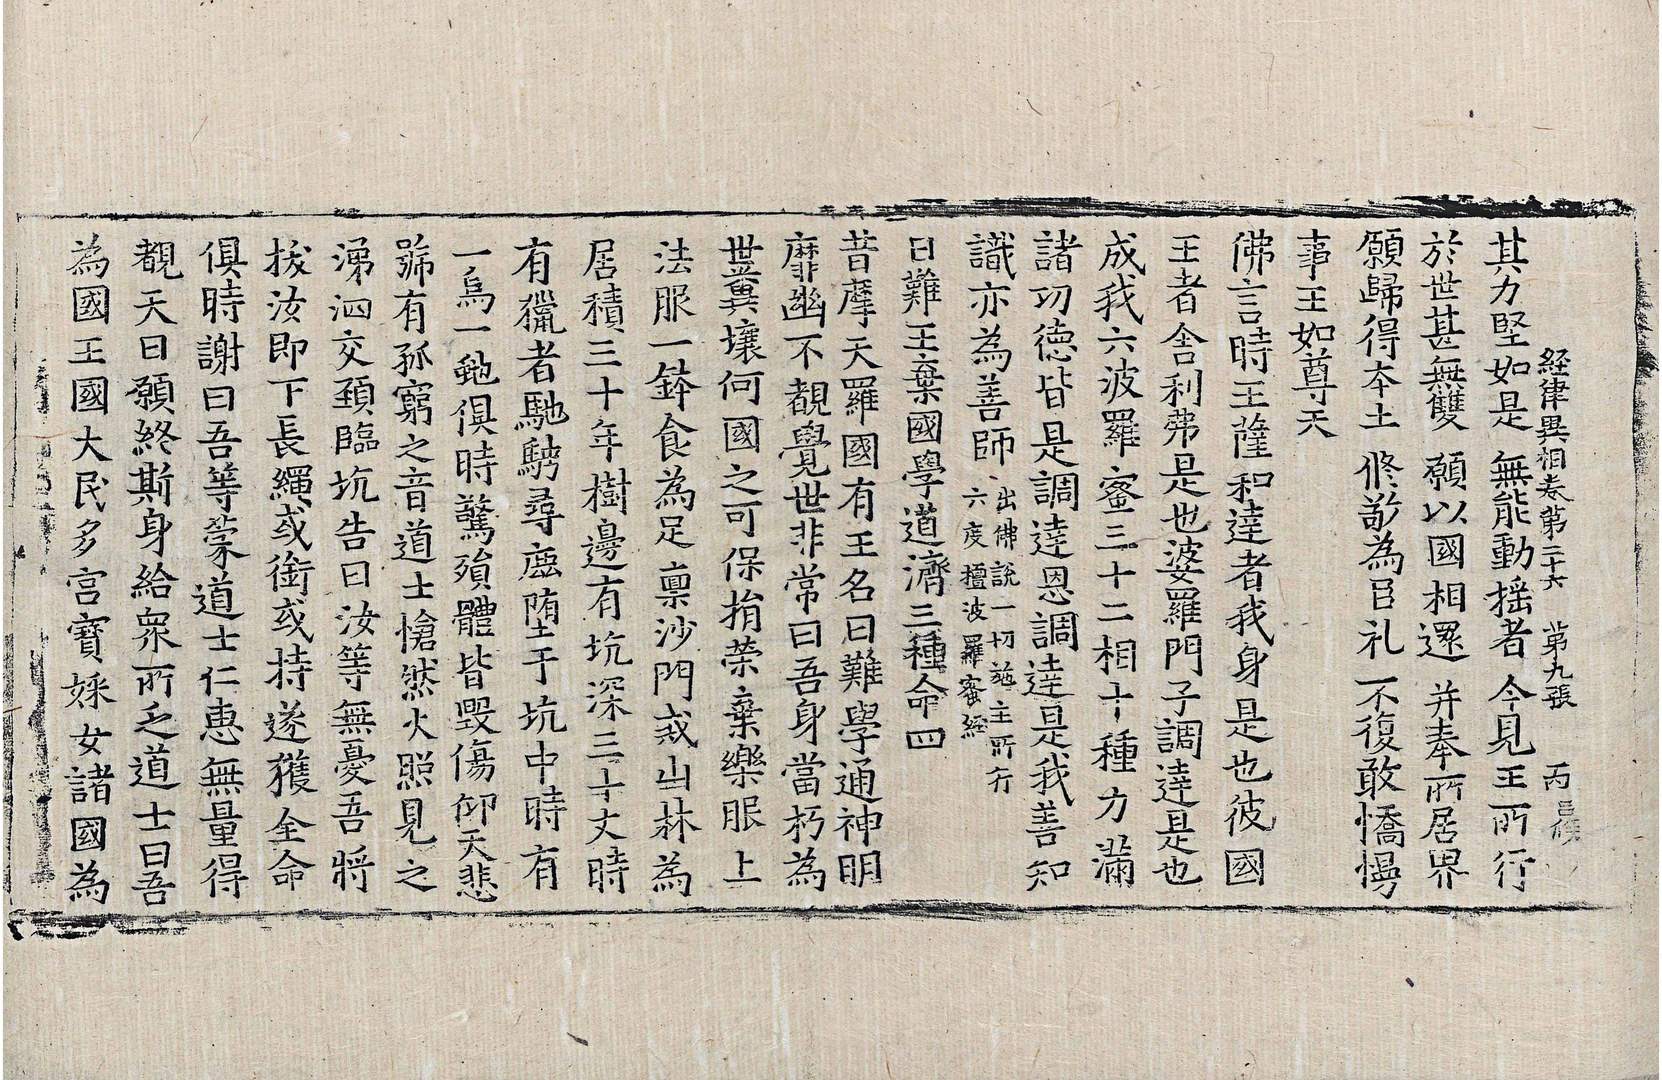 経律異相卷第二十六　第九張　丙
其力堅如是無能動揺者今見王所行
於世甚無雙願以國相還并奉所居界
願歸得本土脩敬為臣礼不復敢憍慢
事王如尊天
佛言時王薩和達者我身是也彼國
王者舍利弗是也婆羅門子調達是也
成我六波羅蜜三十二相十種方滿
諸功德皆是調達恩調達是我善知
識亦為善師出佛說一切施主所行
六度檀波羅蜜經
日難王棄國學道濟三種命四
昔摩天羅國有王名曰難學通神明
靡幽不覩覺世非常曰吾身當朽為
世糞壤何國之可保捐榮棄樂服上
法服一鉢食為足稟沙門戒山林為
居積三十年樹邊有坑深三十丈時
有獵者馳騁尋鹿堕于坑中時有
一烏一虵俱時驚殞體皆毀傷仰天悲
號有孤窮之音道士愴然火照見之
涕泗交頸臨坑告曰汝等無憂吾將
拔汝即下長繩或銜或持遂獲全命
俱時謝曰吾等蒙道士仁惠無量得
覩天日願終斯身給衆所乏道士曰吾
為國王國大民多宮寶婇女諸國為